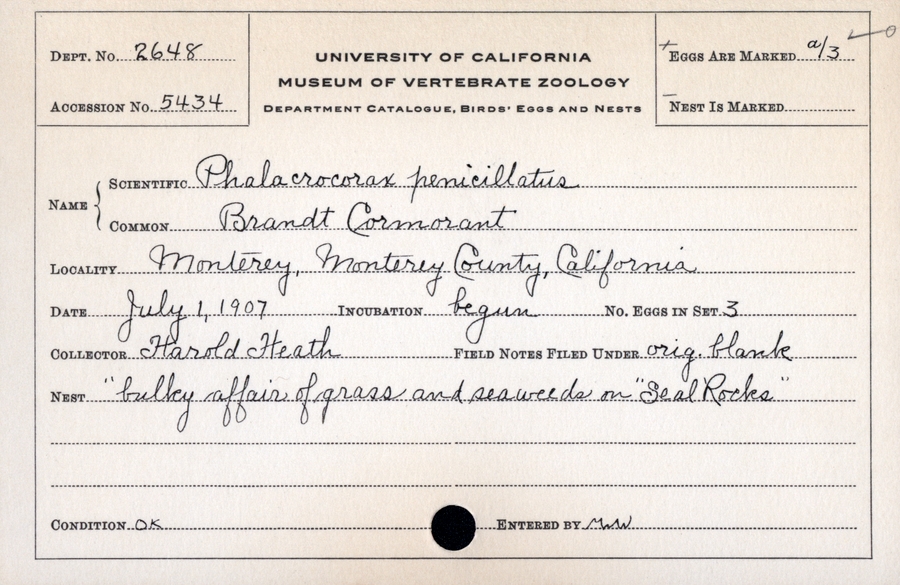 DEPT. NO. 2648
ACCESSION NO. 5434
UNIVERSITY OF CALIFORNIA
MUSEUM OF VERTEBRATE ZOOLOGY
DEPARTMENT CATALOGUE, BIRDS' EGGS AND NESTS
+ EGGS ARE MARKED a/3
– NEST IS MARKED
NAME
SCIENTIFIC Phalacrocorax penicillatus
COMMON Brandt Cormorant
LOCALITY Monterey, Monterey County, California
DATE July 1, 1907 INCUBATION begun NO. EGGS IN SET 3
COLLECTOR Harold Heath FIELD NOTES FILED UNDER orig. blank
NEST "bulky affair of grass and seaweeds on "Seal Rocks"
CONDITION OK ENTERED BY